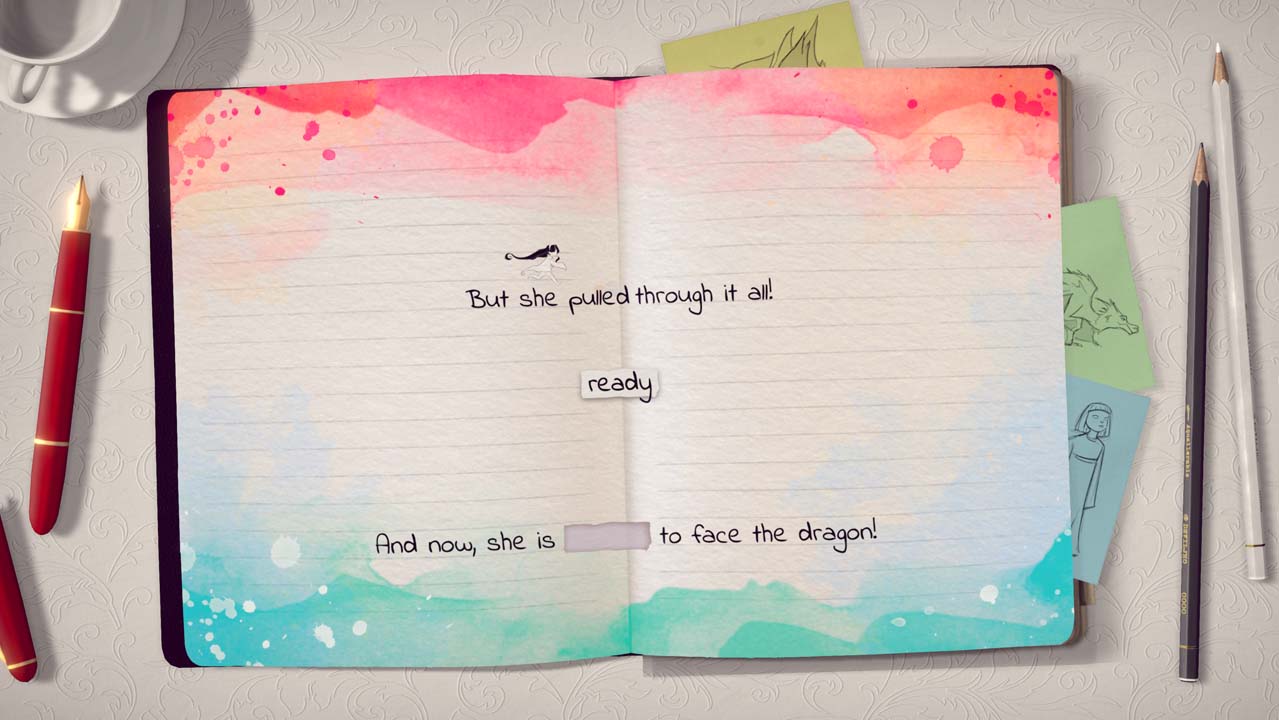 But she pulled through it all!
ready
And now, she is to face the dragon!